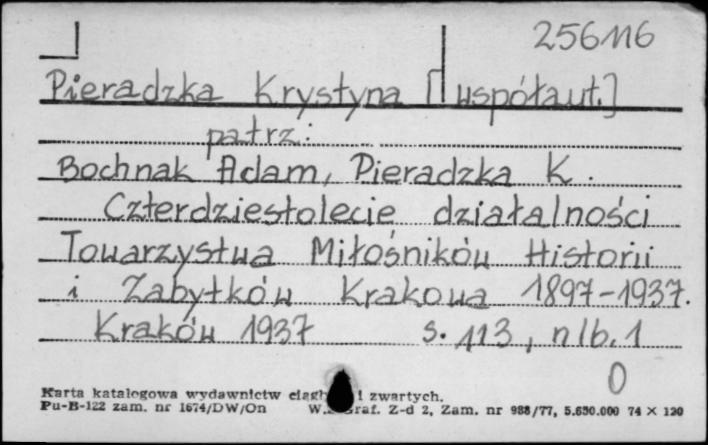 256116
Pieradzka Krystyna [współaut.]
patrz:
Bochnak Adam, Pieradzka K.
Czterdziestolecie działalności
Towarzystwa Miłośników Historii
i Zabytków Krakowa 1897-1937.
Kraków 1937 s. 113, nlb. 1
0
Karta katalogowa wydawnictw i zwartych.
Pu-B-122 zam. nr 1674/DW/On Z-d 2, Zam. nr 988/77, 5.650.000 74 × 120